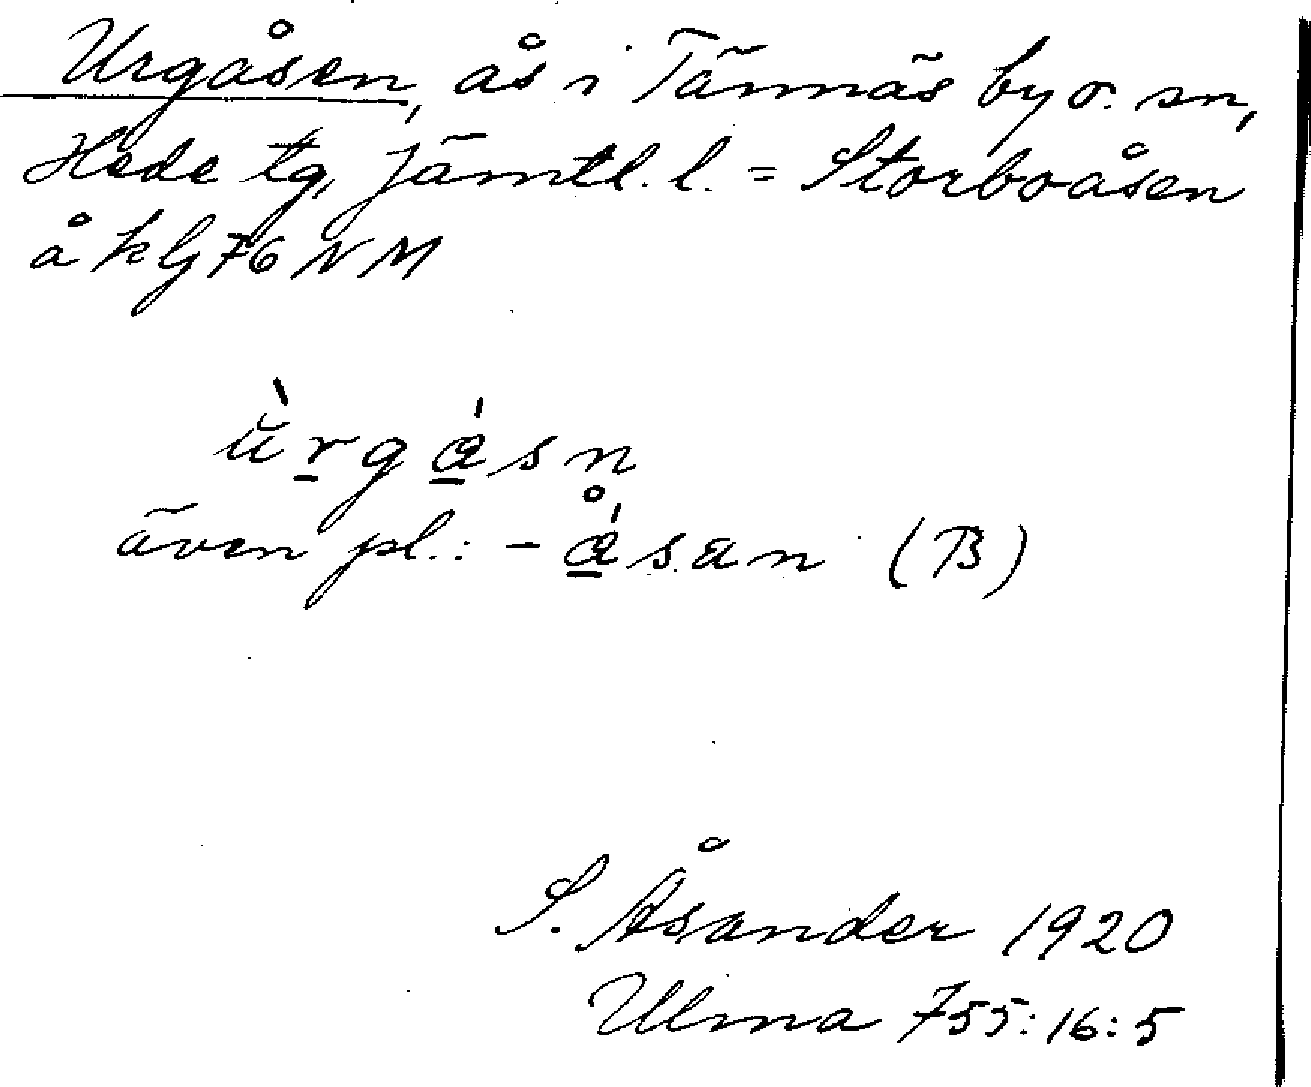 Urgåsen, ås i Tännäs by o. sn,
Hede tg, Jämtl. l. = Storboåsen
å k bl 76 NM
ùrgåsn
även pl.: -åsan (B)
S. Åsander 1920
Ulma 755:16:5